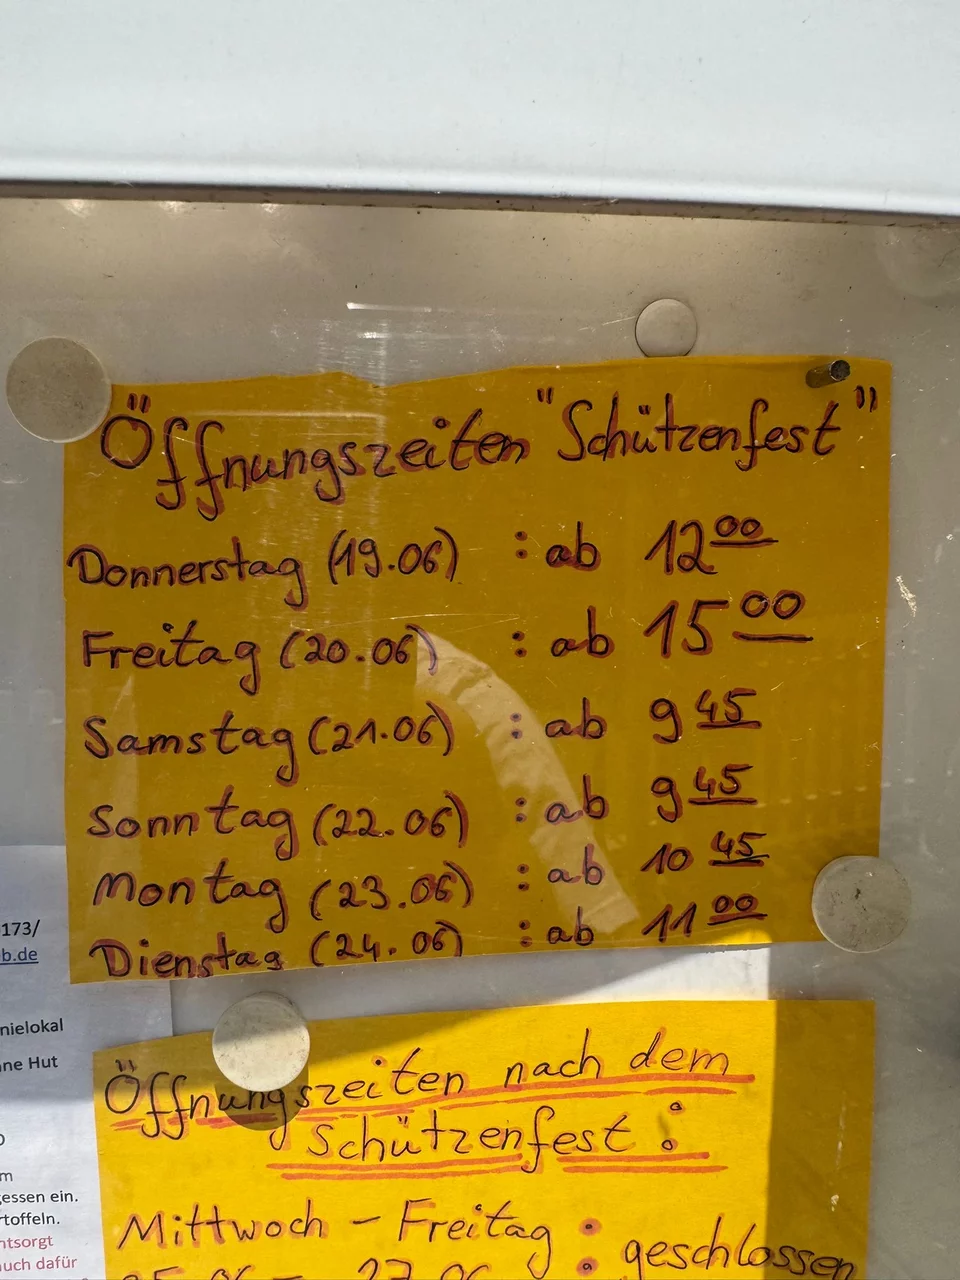 Öffnungszeiten "Schützenfest"
Donnerstag (19.06) : ab 12 00
Freitag (20.06) : ab 15 00
Samstag (21.06) : ab 9 45
Sonntag (22.06) : ab 9 45
Montag (23.06) : ab 10 45
Dienstag (24.06) : ab 11 00
173/
b.de
nielokal
ne Hut
m
essen ein.
toffeln.
ntsorgt
uch dafür
Öffnungszeiten nach dem
Schützenfest :
Mittwoch - Freitag : geschlossen